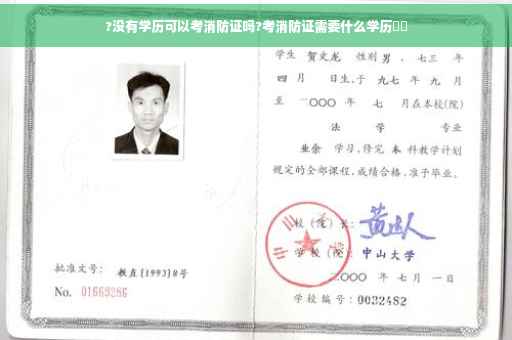 ?没有学历可以考消防证吗?考消防证需要什么学历▯▯
学生 贺文龙 性别 男 、七三 年
四 月 日生,于 九七 年 九 月
至 二〇〇〇 年 七 月在本校(院)
法 学 专业
业余 学习,修完 本 科教学计划
规定的全部课程,成绩合格,准予毕业。
校(院)长:
学校(院): 中山大学
二〇〇〇 年 七 月 一 日
学校编号:0032482
批准文号: 教直[1993]8号
No. 01663286